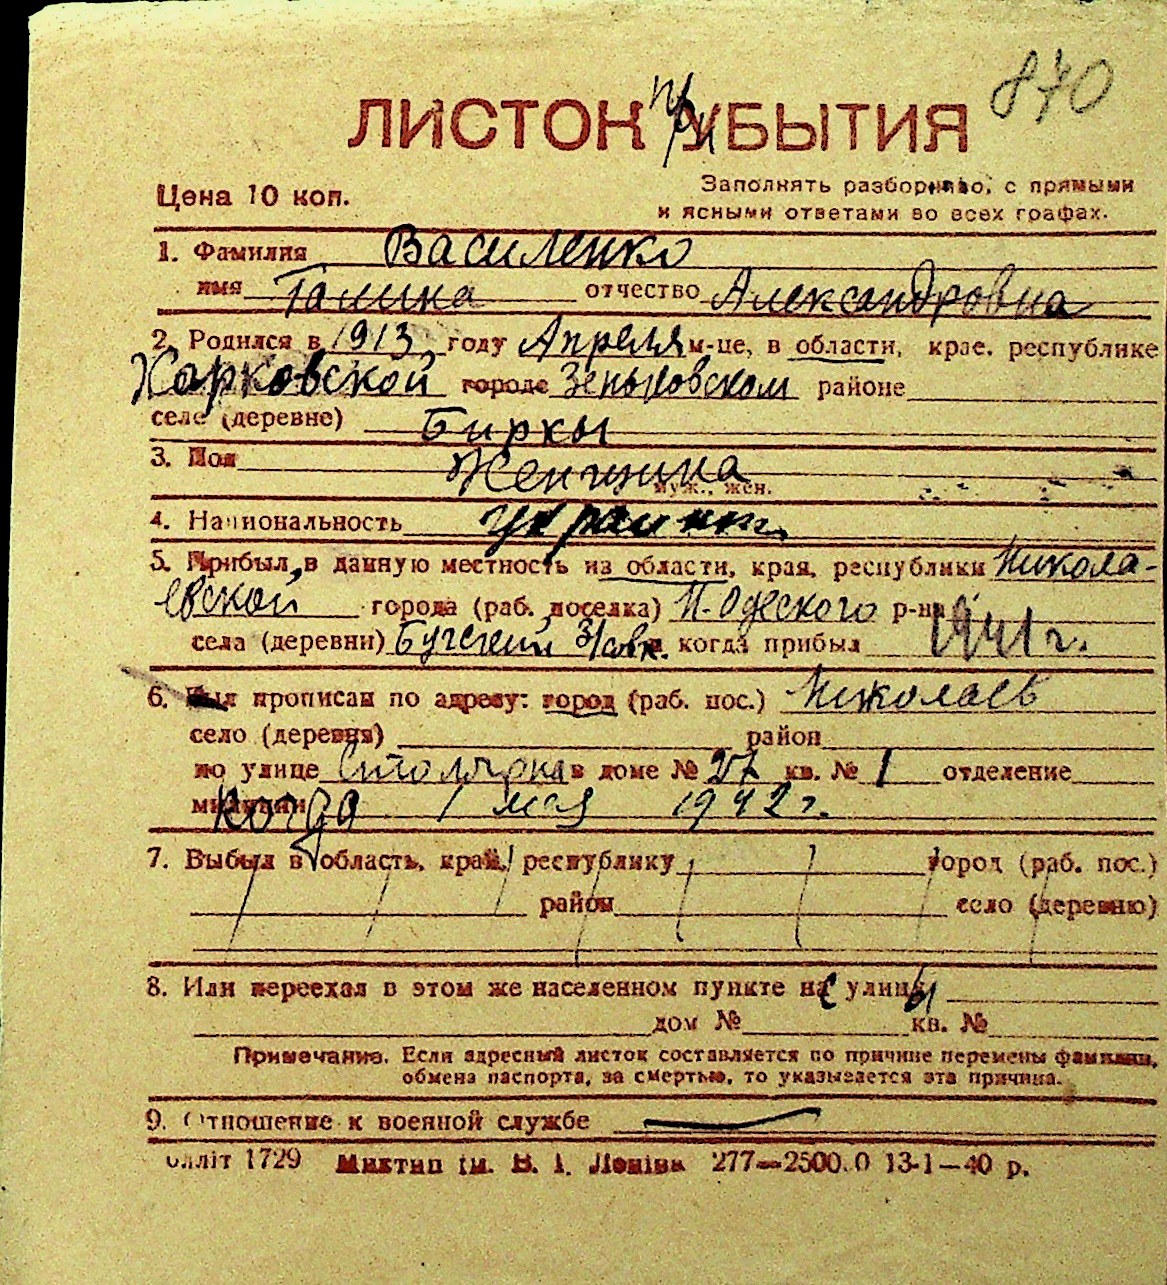 870
ЛИСТОК при УБЫТИЯ
Цена 10 коп.
Заполнять разборчиво, с прямыми
и ясными ответами во всех графах.
1. Фамилия Василенко
имя Галина отчество Александровна
2. Родился в 1913 году Апреля м-це, в области, крае. республике
Харковской городе Зеньковском районе
селе (деревне) Бирки
3. Пол Женщина
муж., жен.
4. Национальность
5. Прибыл, в данную местность из области, края, республики Никола-
евской города (раб. поселка) Н. Одеского р-на
села (деревни) когда прибыл 1941 г.
6. Был прописан по адресу: город (раб. пос.) Николаев
село (деревня) район
по улице в доме № 27 кв. № 1 отделение
милиции когда 1 мая 1942 г.
7. Выбыл в область, край, республику город (раб. пос.)
район село (деревню)
8. Или переехал в этом же населенном пункте на с улицы
дом № кв. №
Примечание. Если адресный листок составляется по причине перемены фамилии,
обмена паспорта, за смертью, то указывается эта причина.
9. Отношение к военной службе
блліт 1729 Миктип ім. В. І. Леніна 277—2500.0 13-1—40 р.